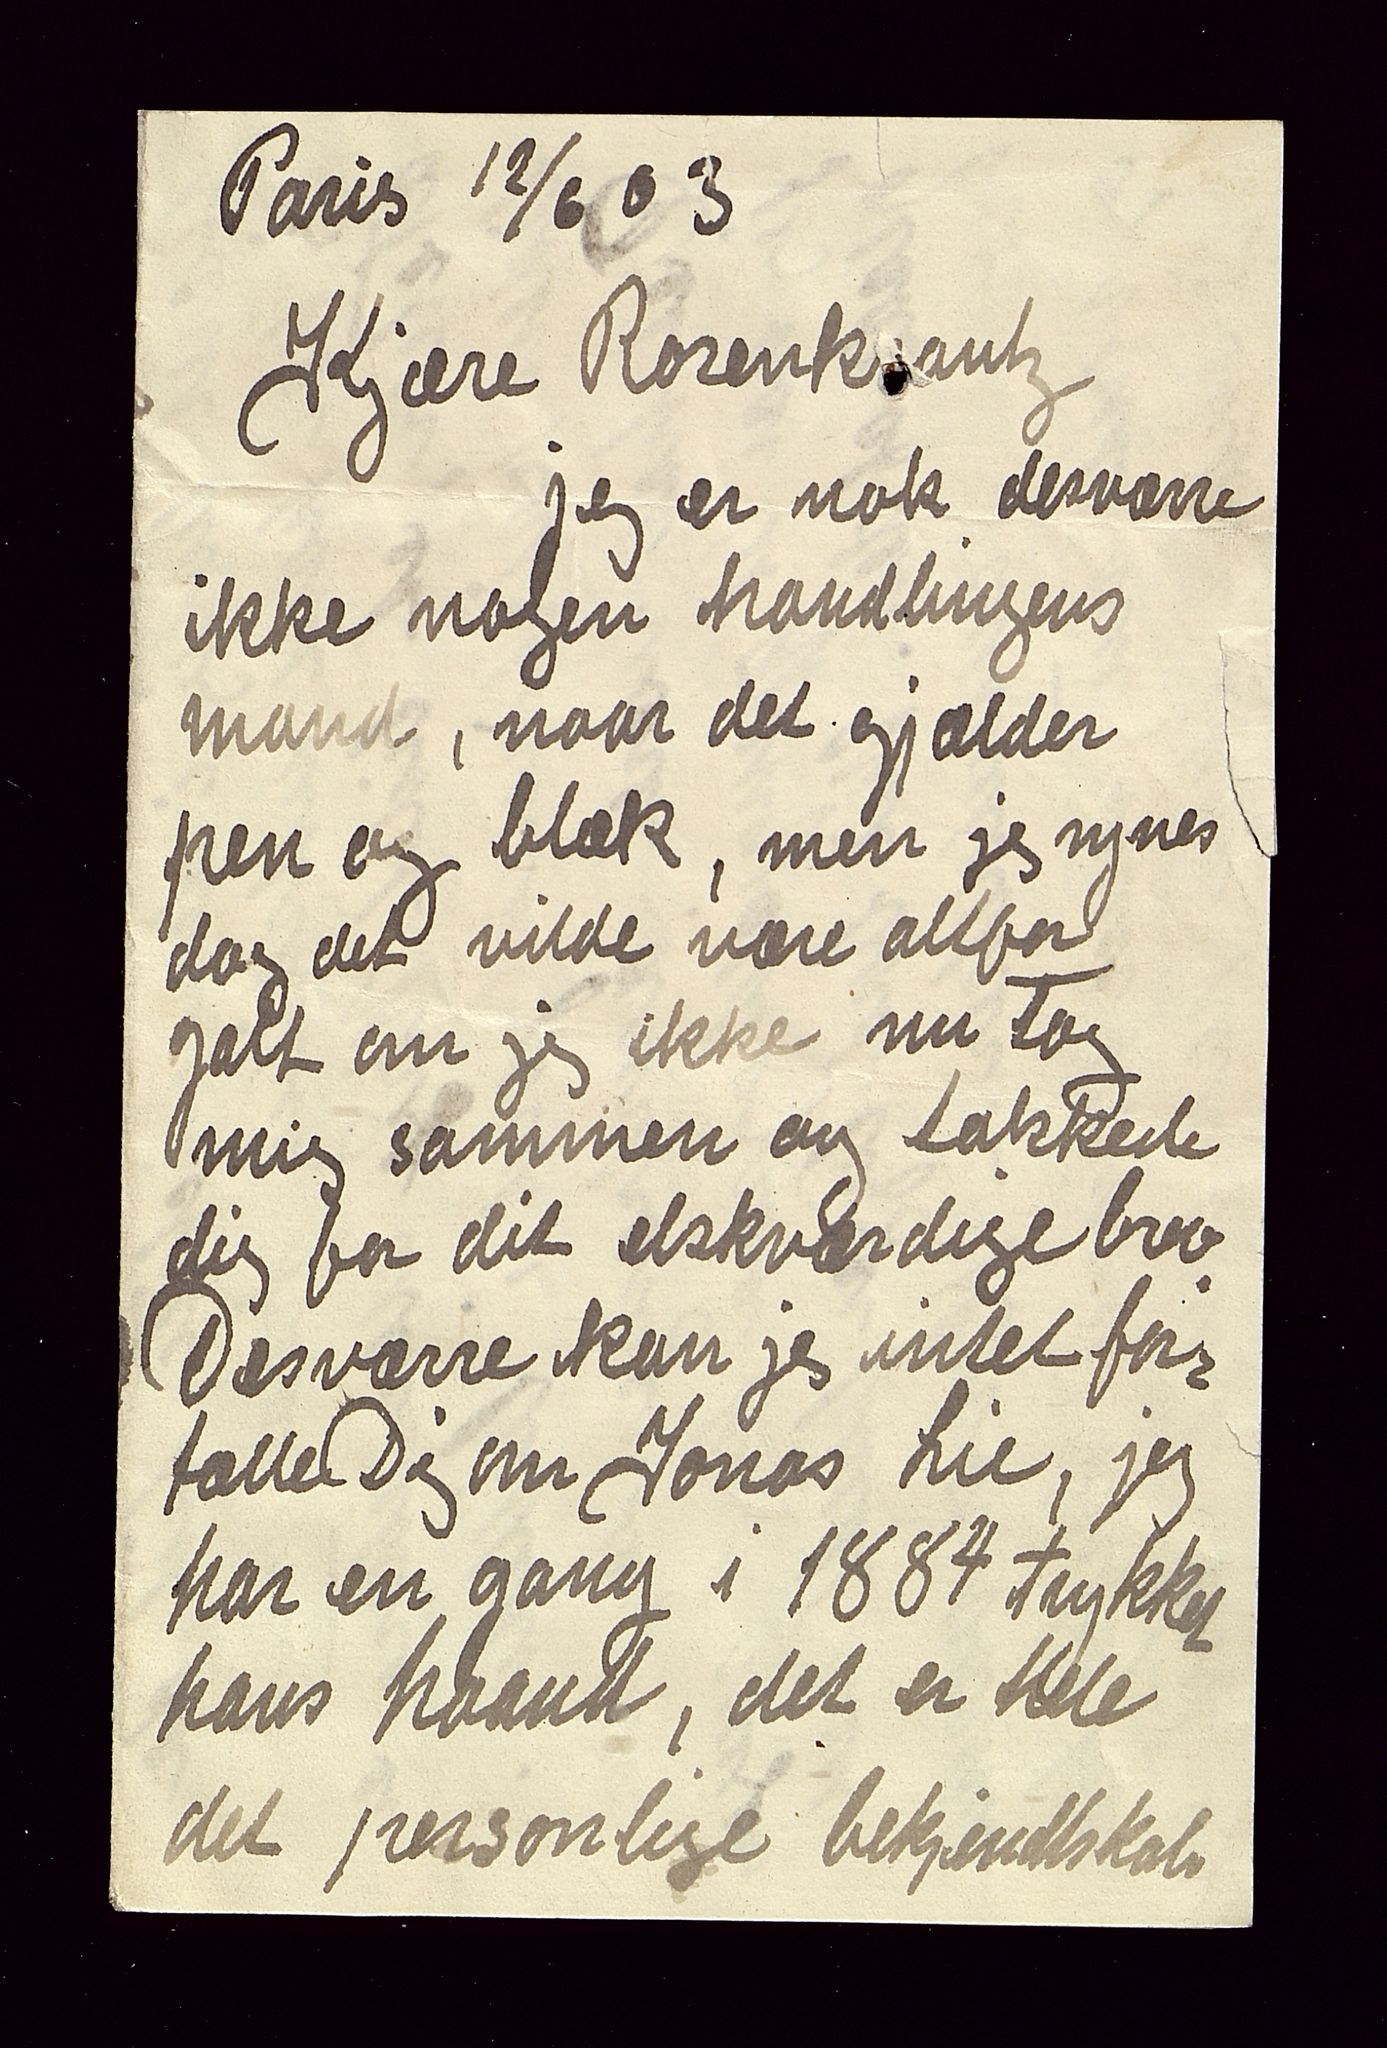 Paris 12/6 03
Kjære Rosenkrantz
jeg er nok desværre
ikke nogen handlingens
mand, naar det gjælder
pen og blæk, men jeg synes
dog det vilde være altfor
galt om jeg ikke nu tog
mig sammen og takkede
dig for dit elskværdige brev.
Desværre kan jeg intet for-
tælle Dig om Jonas Lie, jeg
har en gang i 1884 trykket
hans haand, det er hele
det personlige bekjendtskab